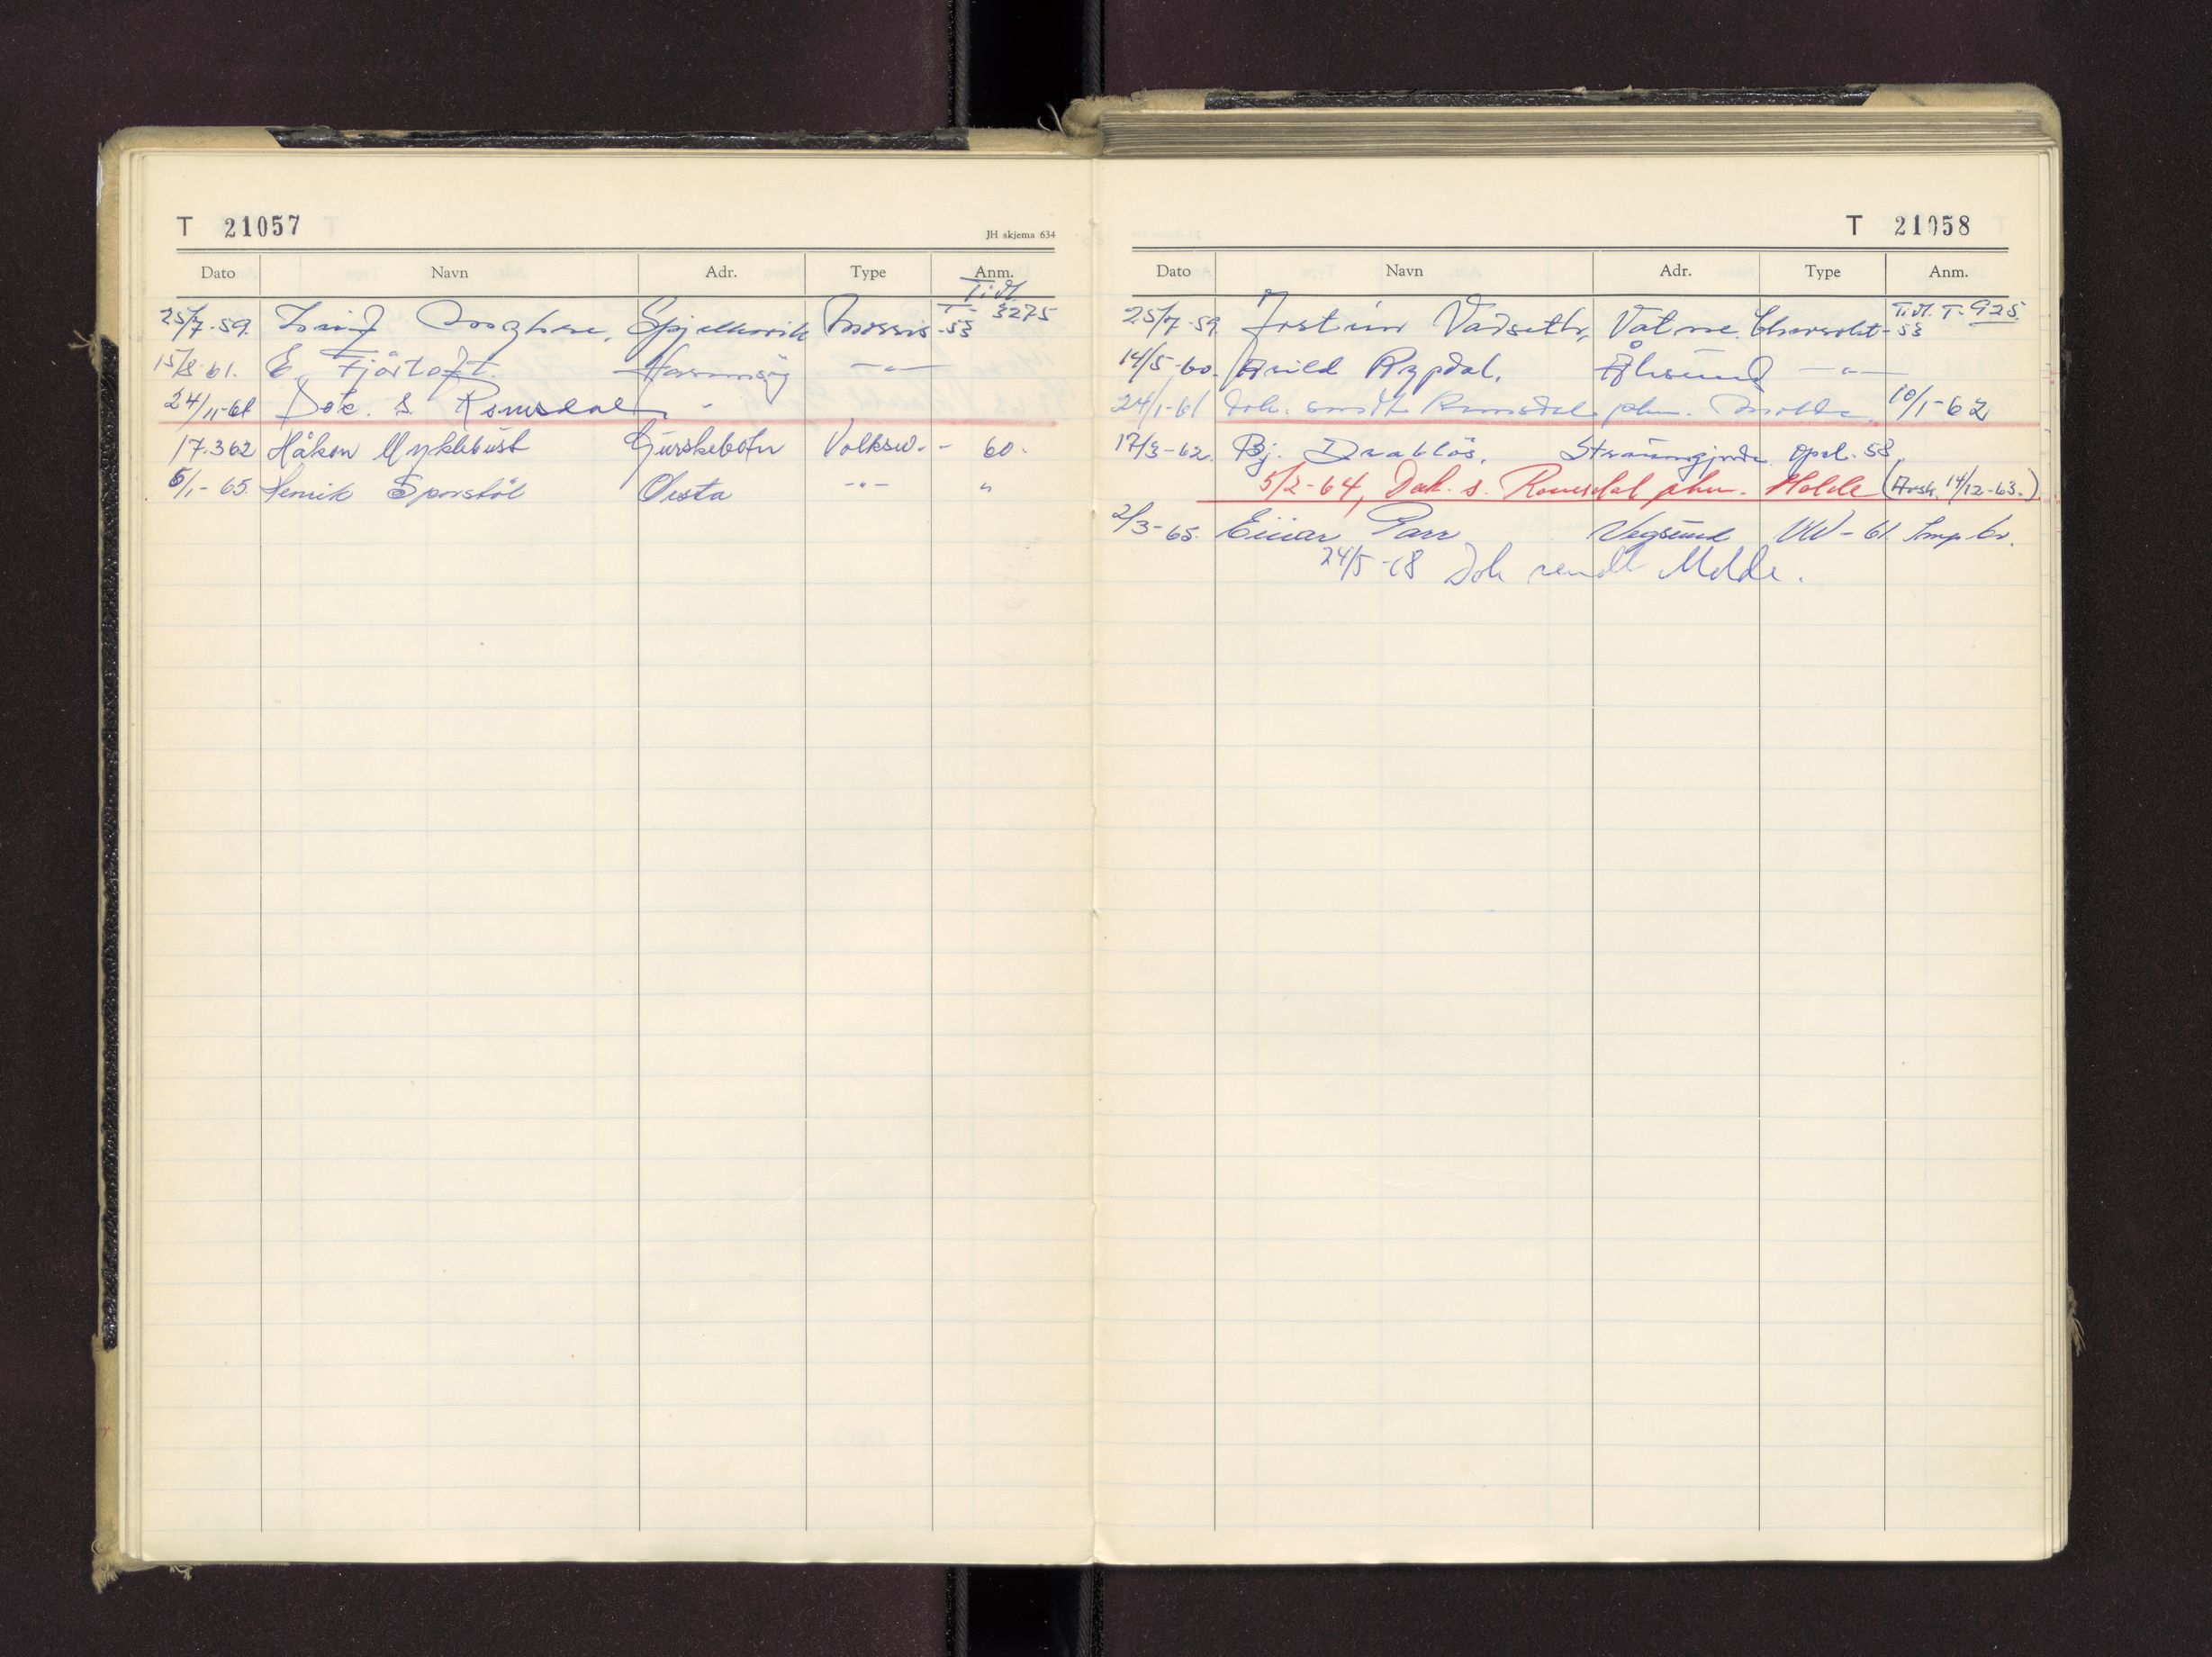 T 21057
JH skjema 634
Dato Navn Adr. Type Anm.
Tidl.
T- 3275
25/7-59. Spjelkavik Morris -53
15/8-61. E. Fjørtoft. —"—
24/11-61 Dok. s. Romsdal
17.3 62 Håkon Myklebust Gurskebotn Volksw. - 60.
6/1-65. Henrik Sporstøl Ørsta -"- "
T 21058
Dato Navn Adr. Type Anm.
Tidl. T-925
25/7-59. Jostein Vadseth, Vatne. Chevrolet-53
14/5-60. Arild Rypdal. Ålesund —"—
24/1-61 Dok. sendt Romsdal phm. Molde. 10/1-62
17/3-62. Bj. Drabløs, Straumgjerde Opel. 58.
5/2-64, Dok. s. Romsdal phm. Molde (Avsk. 14/12-63.)
2/3-65. Einar Parr Vegsund VW-61
24/5-68 Dok sendt Molde.